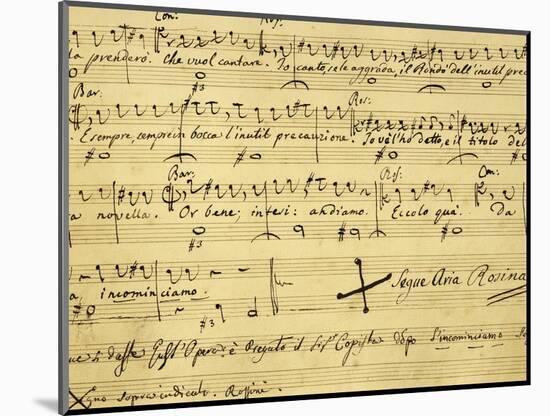 Con: Ros:
la prenderò. Che vuol cantare. Io canto, se le aggrada, il Rondò dell'inutil prec
Bar: Ros:
E sempre, sempre in bocca l'inutil precauzione. Io ve l'ho detto, è il titolo del
Bar: Ros: Con:
a novella. Or bene; intesi: andiamo. Eccolo quà. Da
a, incominciamo. Segue Aria Rosina
Opera: è pregato il Sig.r Copista dopo l'incominciamo
Segno sopraindicato. Rossini.